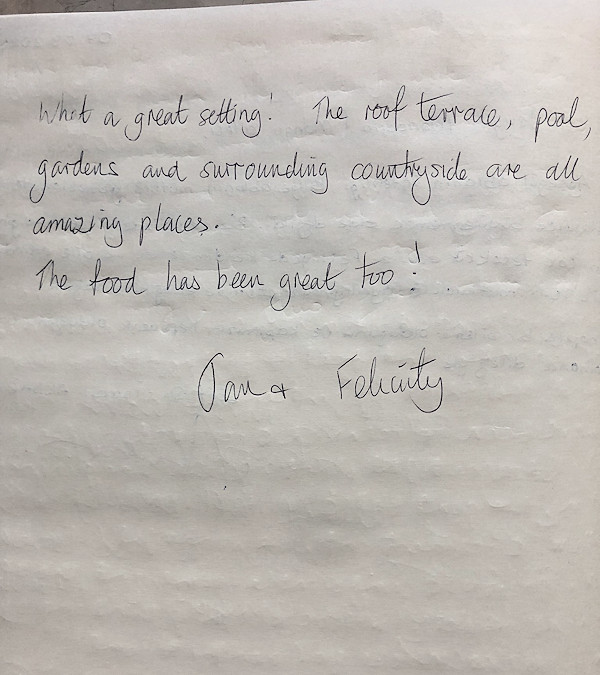 What a great setting! The roof terrace, pool,
gardens and surrounding countryside are all
amazing places.
The food has been great too!
& Felicity